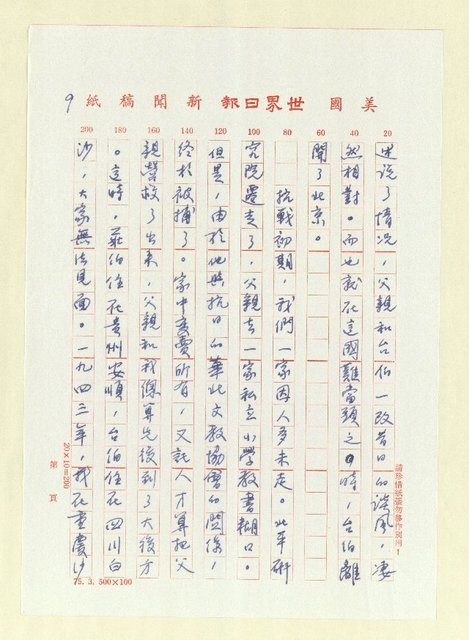 美國世界日報新聞稿紙
9
20
40
60
80
100
120
140
160
180
200
述說了情況，父親和台伯一改昔日的談風，淒
然相對。而也就在這國難當頭之時，台伯離
開了北京。
抗戰初期，我們一家因人多未走。北平研
究院遷走了，父親去一家私立小學教書糊口。
但是，由於他與抗日的華北文教協會的關係，
終於被捕了。家中變賣所有，又託人才算把父
親營救了出來，父親和我總算先後到了大後方
。這時，莊伯住在貴州安順，台伯住在四川白
沙，大家無法見面。一九四三年，我在重慶沙
請珍惜紙張勿移作別用！
20×10=200
第　頁
75.3.500×100